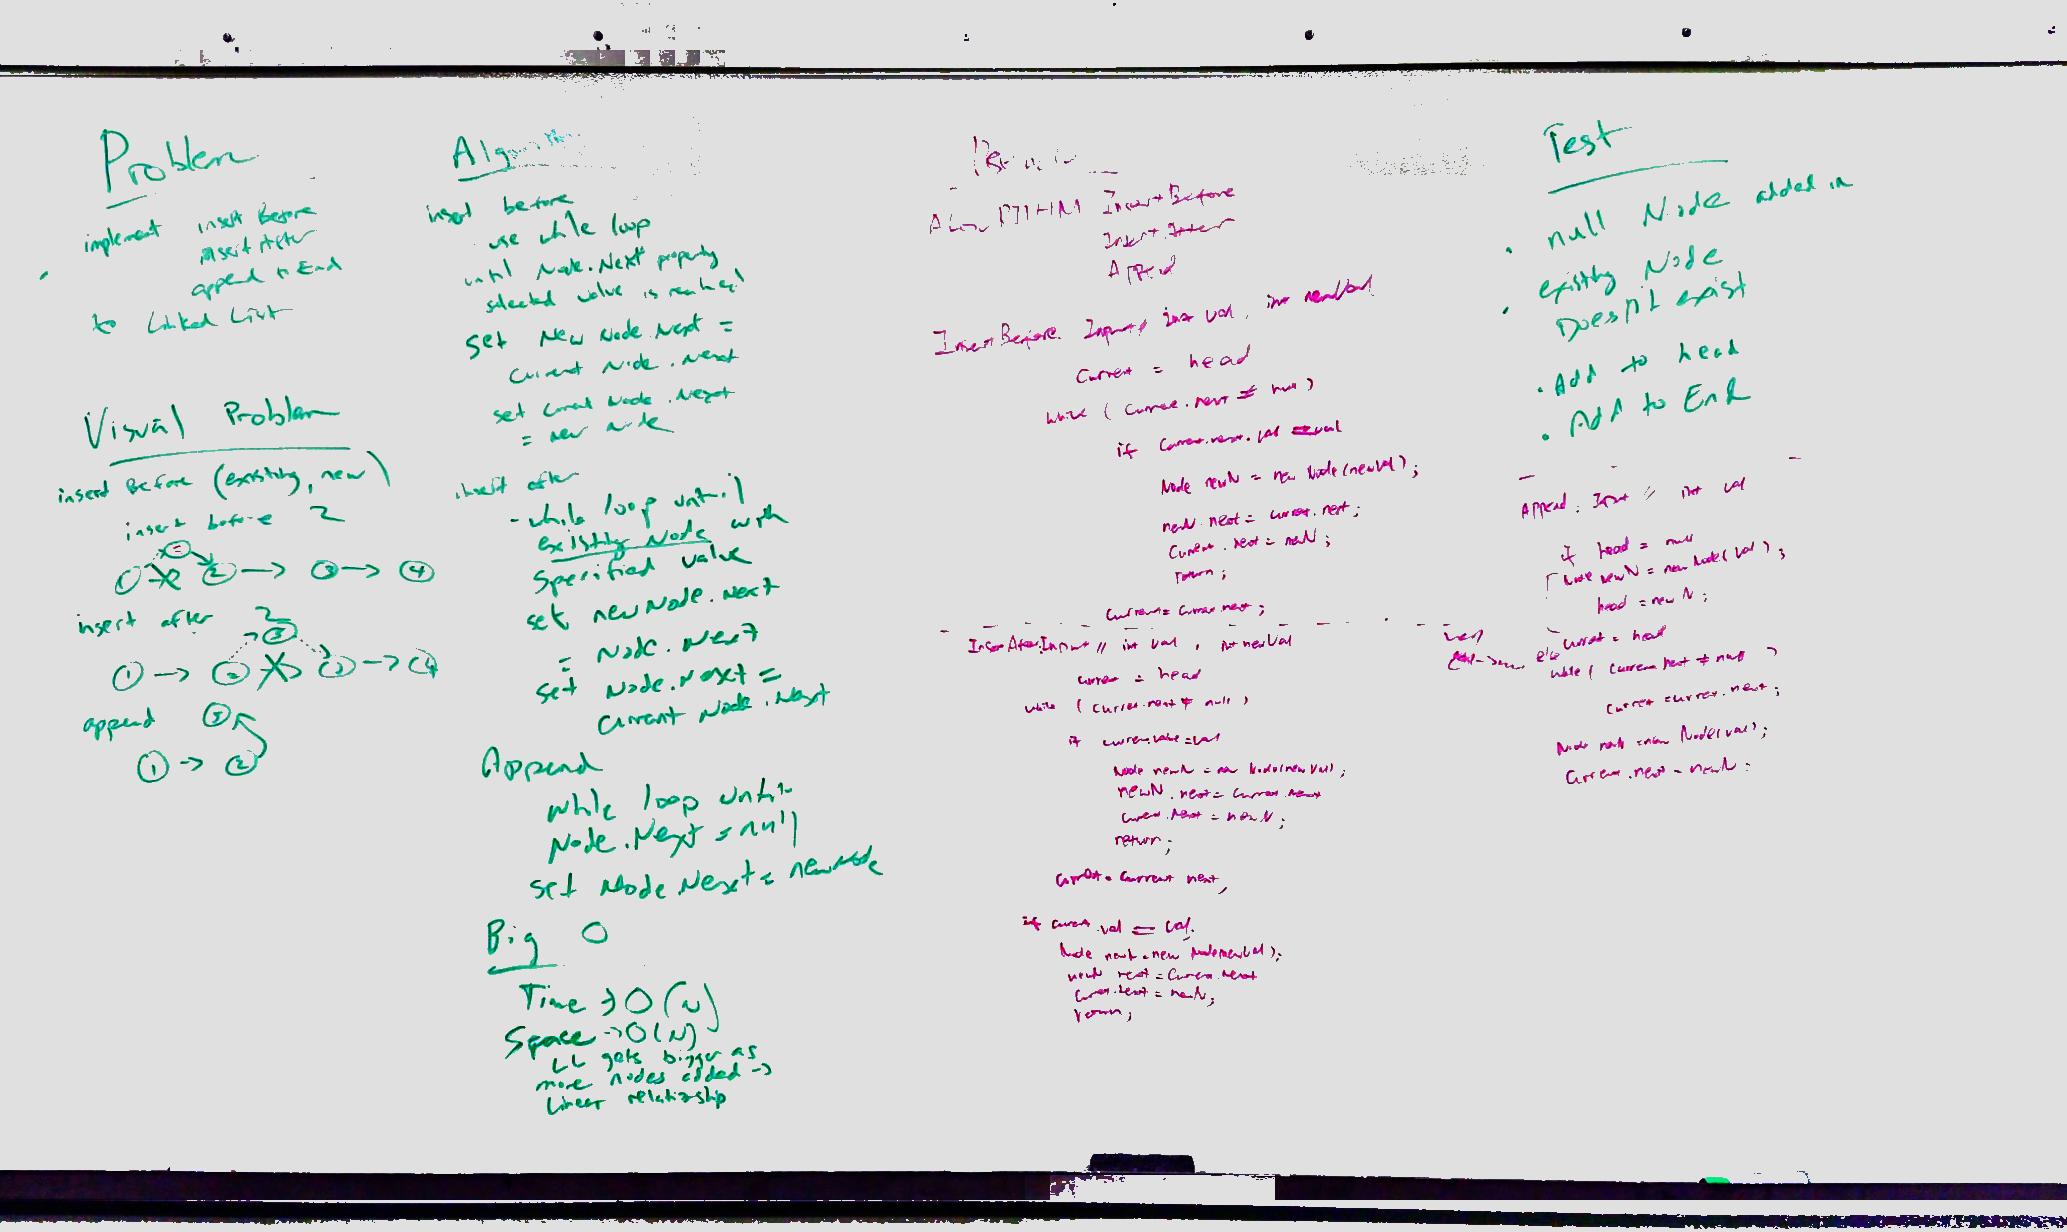 Problem
implement insert Before
insert After
append to End
to Linked List
Visual Problem
insert Before (existing, new)
insert before 2
1 2 → 3 → 4
insert after 2
5
1 → 2 3 → 4
append 3
1 → 2
Algorithm
insert before
use while loop
until Node.Next property
selected value is reached
set New Node.Next =
Current Node.Next
set Current Node.Next
= new Node
insert after
- while loop until
existing Node with
Specified value
set newNode.Next
= Node.Next
set Node.Next =
Current Node.Next
Append
while loop until
Node.Next = null
set Node.Next = newNode
Big O
Time → O(N)
Space → O(N)
LL gets bigger as
more nodes added →
Linear relationship
ALGORITHM InsertBefore
Insert After
Append
InsertBefore. Input // int val, int newVal
Current = head
while (Current.next ≠ null)
if Current.next.val == val
Node newN = new Node(newVal);
newN.next = current.next;
Current.next = newN;
return;
Current = Current.next;
InsertAfter: Input // int val, int newVal
current = head
while (current.next ≠ null)
if current.value = val
Node newN = new Node(newVal);
newN.next = Current.Next
Current.Next = newN;
return;
Current = Current.next;
if current.val == val.
Node newN = new Node(newVal);
newN.next = Current.Next
Current.Next = newN;
return;
Test
• null Node added in
• existing Node
Doesn't exist
• Add to head
• Add to End
Append: Input // int val
if head = null
Node newN = new Node(val);
head = newN;
else current = head
while (current.next ≠ null)
current = current.next;
Node newN = new Node(val);
Current.next = newN;